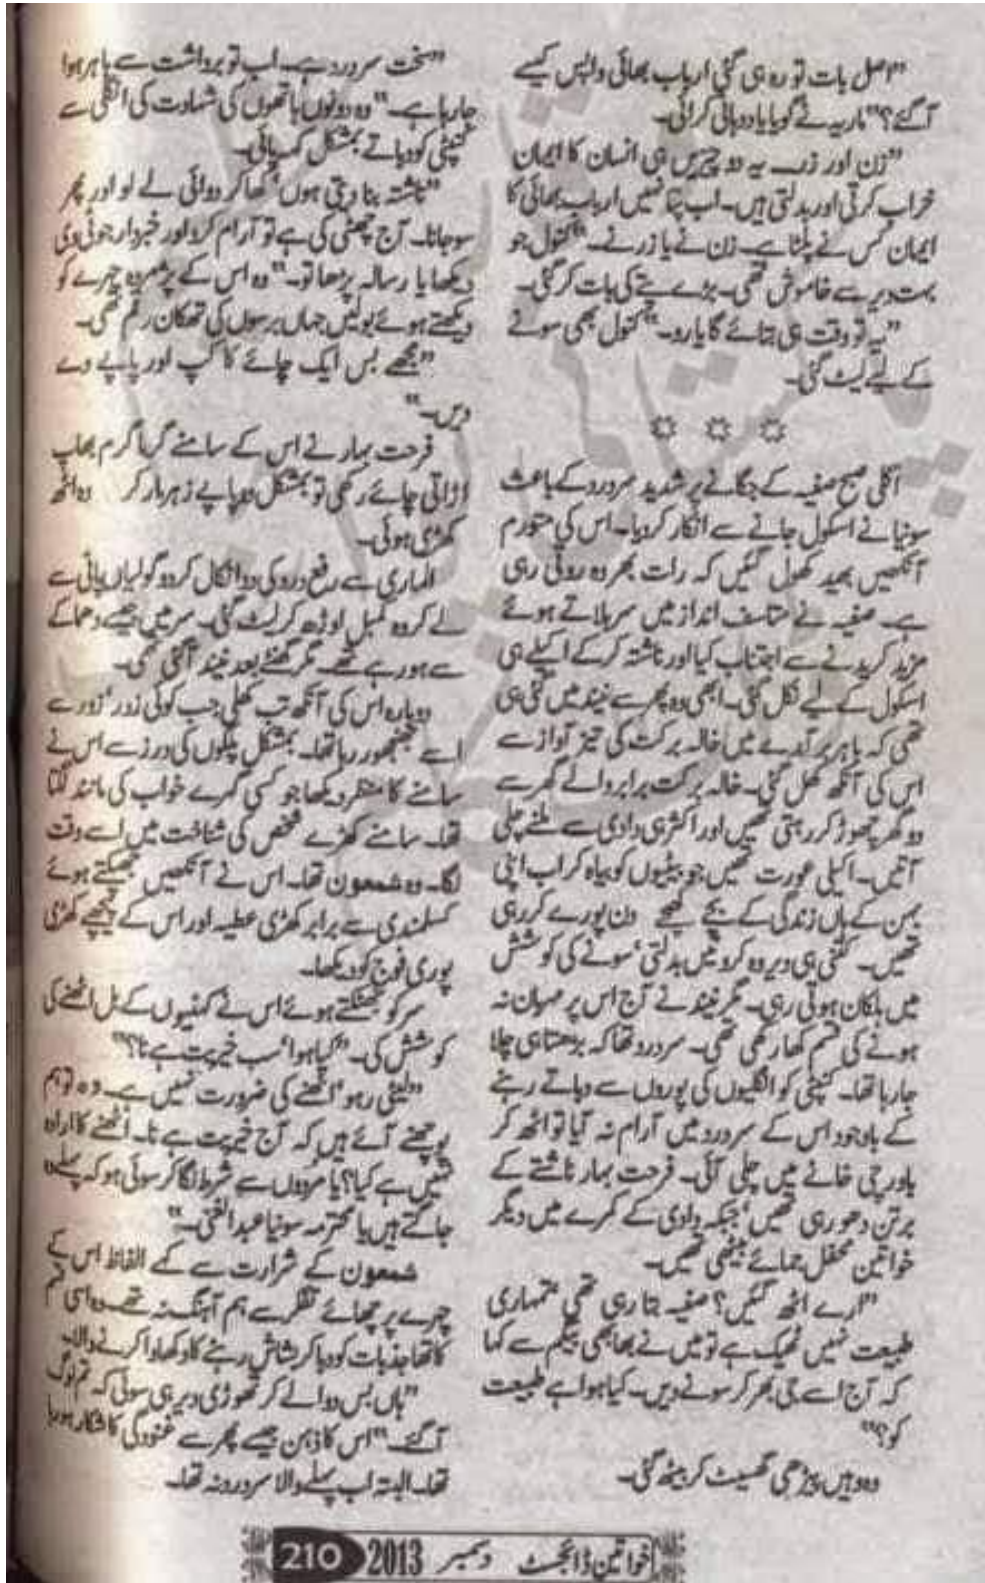 ”اصل بات تو رہ ہی گئی ارباب بھائی واپس کیسے
آگئے؟“ ماریہ نے گویا یاد دہانی کرائی۔
”زن اور زر۔ یہ دو چیزیں ہی انسان کا ایمان
خراب کرتی اور بدلتی ہیں۔ اب پتا نہیں ارباب بھائی کا
ایمان کس نے پلٹا ہے۔ زن نے یا زر نے۔“ کنول جو
بہت دیر سے خاموش تھی۔ بڑے پتے کی بات کر گئی۔
”یہ تو وقت ہی بتائے گا یارو۔“ کنول بھی سونے
کے لیے لیٹ گئی۔
اگلی صبح صفیہ کے جگانے پر شدید سر درد کے باعث
سونیا نے اسکول جانے سے انکار کر دیا۔ اس کی متورم
آنکھیں بھید کھول گئیں کہ رات بھر وہ روتی رہی
ہے۔ صفیہ نے متاسف انداز میں سر ہلاتے ہوئے
مزید کریدنے سے اجتناب کیا اور ناشتہ کر کے اکیلے ہی
اسکول کے لیے نکل گئی۔ ابھی وہ پھر سے نیند میں گئی ہی
تھی کہ باہر برآمدے میں خالہ برکت کی تیز آواز سے
اس کی آنکھ کھل گئی۔ خالہ برکت برابر والے گھر سے
دو گھر چھوڑ کر رہتی تھیں اور اکثر ہی دادی سے ملنے چلی
آتیں۔ اکیلی عورت تھیں جو بیٹیوں کو بیاہ کر اب اپنی
بہن کے ہاں زندگی کے بچے کھچے دن پورے کر رہی
تھیں۔ کتنی ہی دیر وہ کروٹیں بدلتی‘ سونے کی کوشش
میں ہلکان ہوتی رہی۔ مگر نیند نے آج اس پر مہربان نہ
ہونے کی قسم کھا رکھی تھی۔ سر درد تھا کہ بڑھتا ہی چلا
جا رہا تھا۔ کنپٹی کو انگلیوں کی پوروں سے دباتے رہنے
کے باوجود اس کے سر درد میں آرام نہ آیا تو اٹھ کر
باورچی خانے میں چلی آئی۔ فرحت بہار ناشتے کے
برتن دھو رہی تھیں‘ جبکہ دادی کے کمرے میں دیگر
خواتین محفل جمائے بیٹھی تھیں۔
”ارے اٹھ گئیں؟ صفیہ بتا رہی تھی تمہاری
طبیعت نہیں ٹھیک ہے تو میں نے بھابھی بیگم سے کہا
کہ آج اسے جی بھر کر سونے دیں۔ کیا ہوا ہے طبیعت
کو؟“
وہ وہیں پیڑھی گھسیٹ کر بیٹھ گئی۔
”سخت سر درد ہے۔ اب تو برداشت سے باہر ہوا
جا رہا ہے۔“ وہ دونوں ہاتھوں کی شہادت کی انگلی سے
کنپٹی کو دباتے بمشکل کہہ پائی۔
”ناشتہ بنا دیتی ہوں‘ کھا کر دوائی لے لو اور پھر
سو جانا۔ آج چھٹی کی ہے تو آرام کرو اور خبردار جو ٹی وی
دیکھا یا رسالہ پڑھا تو۔“ وہ اس کے پژمردہ چہرے کو
دیکھتے ہوئے بولیں جہاں برسوں کی تھکان رقم تھی۔
”مجھے بس ایک چائے کا کپ اور پاپے دے
دیں۔“
فرحت بہار نے اس کے سامنے گرما گرم بھاپ
اڑاتی چائے رکھی تو بمشکل دو پاپے زہر مار کر وہ اٹھ
کھڑی ہوئی۔
الماری سے رفع درد کی دوا نکال کر دو گولیاں پانی سے
لے کر وہ کمبل اوڑھ کر لیٹ گئی۔ سر میں جیسے دھماکے
سے ہو رہے تھے۔ مگر گھنٹے بعد نیند آ گئی تھی۔
دوبارہ اس کی آنکھ تب کھلی جب کوئی زور‘ زور سے
اسے جھنجھوڑ رہا تھا۔ بمشکل پلکوں کی درز سے اس نے
سامنے کا منظر دیکھا جو کسی گہرے خواب کی مانند لگتا
تھا۔ سامنے کھڑے شخص کی شناخت میں اسے وقت
لگا۔ وہ شمعون تھا۔ اس نے آنکھیں جھپکتے ہوئے
کسلمندی سے برابر کھڑی عطیہ اور اس کے پیچھے کھڑی
پوری فوج کو دیکھا۔
سر کو جھٹکتے ہوئے اس نے کہنیوں کے بل اٹھنے کی
کوشش کی۔ ”کیا ہوا‘ سب خیریت ہے نا؟“
”لیٹی رہو‘ اٹھنے کی ضرورت نہیں ہے۔ وہ تو ہم
پوچھنے آئے ہیں کہ آج خیریت ہے نا۔ اٹھنے کا ارادہ
نہیں ہے کیا؟ یا مُردوں سے شرط لگا کر سوئی ہو کہ پہلے وہ
جاگتے ہیں یا محترمہ سونیا عبدالغنی۔“
شمعون کے شرارت سے کہے الفاظ اس کے
چہرے پر چھائے تفکر سے ہم آہنگ نہ تھے۔ وہ اسی قسم
کا تھا جذبات کو دبا کر بشاش رہنے کا دکھاوا کرنے والا۔
”ہاں بس دوا لے کر تھوڑی دیر ہی سوئی کہ تم لوگ
آ گئے۔“ اس کا ذہن جیسے پھر سے غنودگی کا شکار ہو رہا
تھا۔ البتہ اب پہلے والا سر درد نہ تھا۔
خواتین ڈائجسٹ دسمبر 2013 210